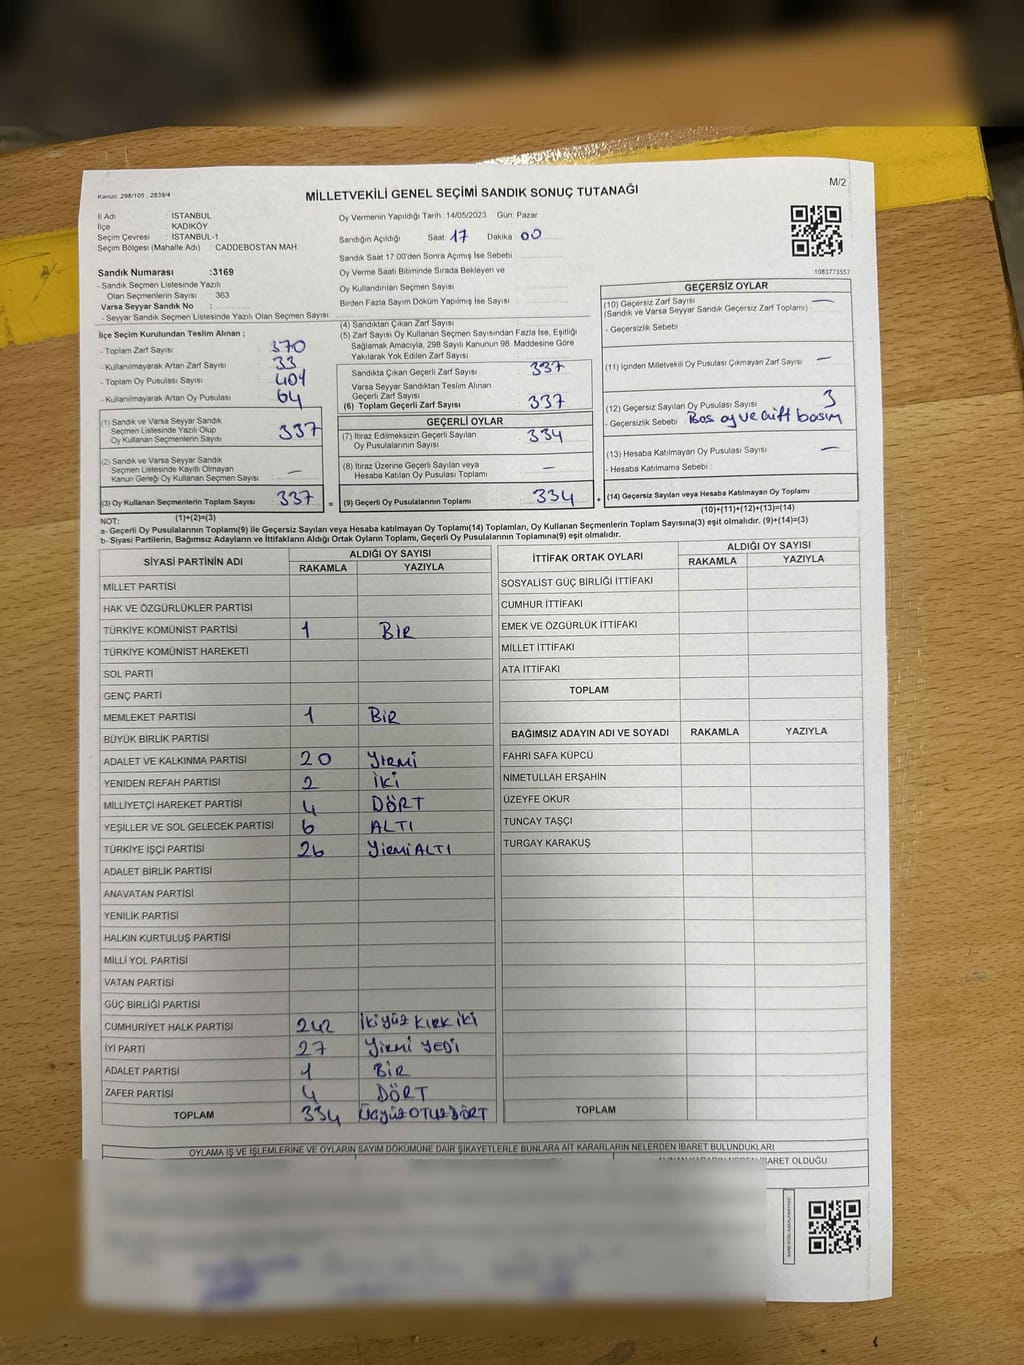 Kanun: 298/105 , 2839/4
MİLLETVEKİLİ GENEL SEÇİMİ SANDIK SONUÇ TUTANAĞI
M/2
İl Adı : İSTANBUL
İlçe : KADIKÖY
Seçim Çevresi : İSTANBUL-1
Seçim Bölgesi (Mahalle Adı) : CADDEBOSTAN MAH
Sandık Numarası :3169
- Sandık Seçmen Listesinde Yazılı
Olan Seçmenlerin Sayısı : 363
Varsa Seyyar Sandık No :
- Seyyar Sandık Seçmen Listesinde Yazılı Olan Seçmen Sayısı:
Oy Vermenin Yapıldığı Tarih :14/05/2023 Gün: Pazar
Sandığın Açıldığı Saat: 17 Dakika : 00
Sandık Saat 17.00'den Sonra Açımış İse Sebebi :
Oy Verme Saati Bitiminde Sırada Bekleyen ve
Oy Kullandırılan Seçmen Sayısı :
Birden Fazla Sayım Döküm Yapılmış İse Sayısı :
1083773557
İlçe Seçim Kurulundan Teslim Alınan ;
- Toplam Zarf Sayısı : 370
- Kullanılmayarak Artan Zarf Sayısı : 33
- Toplam Oy Pusulası Sayısı : 401
- Kullanılmayarak Artan Oy Pusulası : 64
(1) Sandık ve Varsa Seyyar Sandık
Seçmen Listesinde Yazılı Olup
Oy Kullanan Seçmenlerin Sayısı : 337
(2) Sandık ve Varsa Seyyar Sandık
Seçmen Listesinde Kayıtlı Olmayan
Kanun Gereği Oy Kullanan Seçmen Sayısı : —
(3) Oy Kullanan Seçmenlerin Toplam Sayısı : 337
(1)+(2)=(3)
(4) Sandıktan Çıkan Zarf Sayısı
(5) Zarf Sayısı Oy Kullanan Seçmen Sayısından Fazla İse, Eşitliği
Sağlamak Amacıyla, 298 Sayılı Kanunun 98. Maddesine Göre
Yakılarak Yok Edilen Zarf Sayısı :
Sandıkta Çıkan Geçerli Zarf Sayısı : 337
Varsa Seyyar Sandıktan Teslim Alınan
Geçerli Zarf Sayısı :
(6) Toplam Geçerli Zarf Sayısı : 337
GEÇERLİ OYLAR
(7) İtiraz Edilmeksizin Geçerli Sayılan
Oy Pusulalarının Sayısı : 334
(8) İtiraz Üzerine Geçerli Sayılan veya
Hesaba Katılan Oy Pusulası Toplamı : —
= (9) Geçerli Oy Pusulalarının Toplamı : 334
GEÇERSİZ OYLAR
(10) Geçersiz Zarf Sayısı : —
(Sandık ve Varsa Seyyar Sandık Geçersiz Zarf Toplamı)
- Geçersizlik Sebebi :
(11) İçinden Milletvekili Oy Pusulası Çıkmayan Zarf Sayısı : —
(12) Geçersiz Sayılan Oy Pusulası Sayısı : 3
- Geçersizlik Sebebi : Bos oy ve çift basım
(13) Hesaba Katılmayan Oy Pusulası Sayısı : —
- Hesaba Katılmama Sebebi :
+ (14) Geçersiz Sayılan veya Hesaba Katılmayan Oy Pusulası Toplamı :
(10)+(11)+(12)+(13)=(14)
NOT:
a- Geçerli Oy Pusulalarının Toplamı(9) ile Geçersiz Sayılan veya Hesaba katılmayan Oy Toplamı(14) Toplamları, Oy Kullanan Seçmenlerin Toplam Sayısına(3) eşit olmalıdır. (9)+(14)=(3)
b- Siyasi Partilerin, Bağımsız Adayların ve İttifakların Aldığı Ortak Oyların Toplamı, Geçerli Oy Pusulalarının Toplamına(9) eşit olmalıdır.
SİYASİ PARTİNİN ADI ALDIĞI OY SAYISI
RAKAMLA YAZIYLA
MİLLET PARTİSİ
HAK VE ÖZGÜRLÜKLER PARTİSİ
TÜRKİYE KOMÜNİST PARTİSİ 1 BİR
TÜRKİYE KOMÜNİST HAREKETİ
SOL PARTİ
GENÇ PARTİ
MEMLEKET PARTİSİ 1 BİR
BÜYÜK BİRLİK PARTİSİ
ADALET VE KALKINMA PARTİSİ 20 Yirmi
YENİDEN REFAH PARTİSİ 2 İKİ
MİLLİYETÇİ HAREKET PARTİSİ 4 DÖRT
YEŞİLLER VE SOL GELECEK PARTİSİ 6 ALTI
TÜRKİYE İŞÇİ PARTİSİ 26 YİRMİALTI
ADALET BİRLİK PARTİSİ
ANAVATAN PARTİSİ
YENİLİK PARTİSİ
HALKIN KURTULUŞ PARTİSİ
MİLLİ YOL PARTİSİ
VATAN PARTİSİ
GÜÇ BİRLİĞİ PARTİSİ
CUMHURİYET HALK PARTİSİ 242 İki yüz KIRK İKİ
İYİ PARTİ 27 YİRMİ YEDİ
ADALET PARTİSİ 1 BİR
ZAFER PARTİSİ 4 DÖRT
TOPLAM 334 ÜçyüzOTUZDÖRT
İTTİFAK ORTAK OYLARI ALDIĞI OY SAYISI
RAKAMLA YAZIYLA
SOSYALİST GÜÇ BİRLİĞİ İTTİFAKI
CUMHUR İTTİFAKI
EMEK VE ÖZGÜRLÜK İTTİFAKI
MİLLET İTTİFAKI
ATA İTTİFAKI
TOPLAM
BAĞIMSIZ ADAYIN ADI VE SOYADI RAKAMLA YAZIYLA
FAHRİ SAFA KÜPCÜ
NİMETULLAH ERŞAHİN
ÜZEYFE OKUR
TUNCAY TAŞÇI
TURGAY KARAKUŞ
TOPLAM
OYLAMA İŞ VE İŞLEMLERİNE VE OYLARIN SAYIM DÖKÜMÜNE DAİR ŞİKAYETLERLE BUNLARA AİT KARARLARIN NELERDEN İBARET BULUNDUKLARI